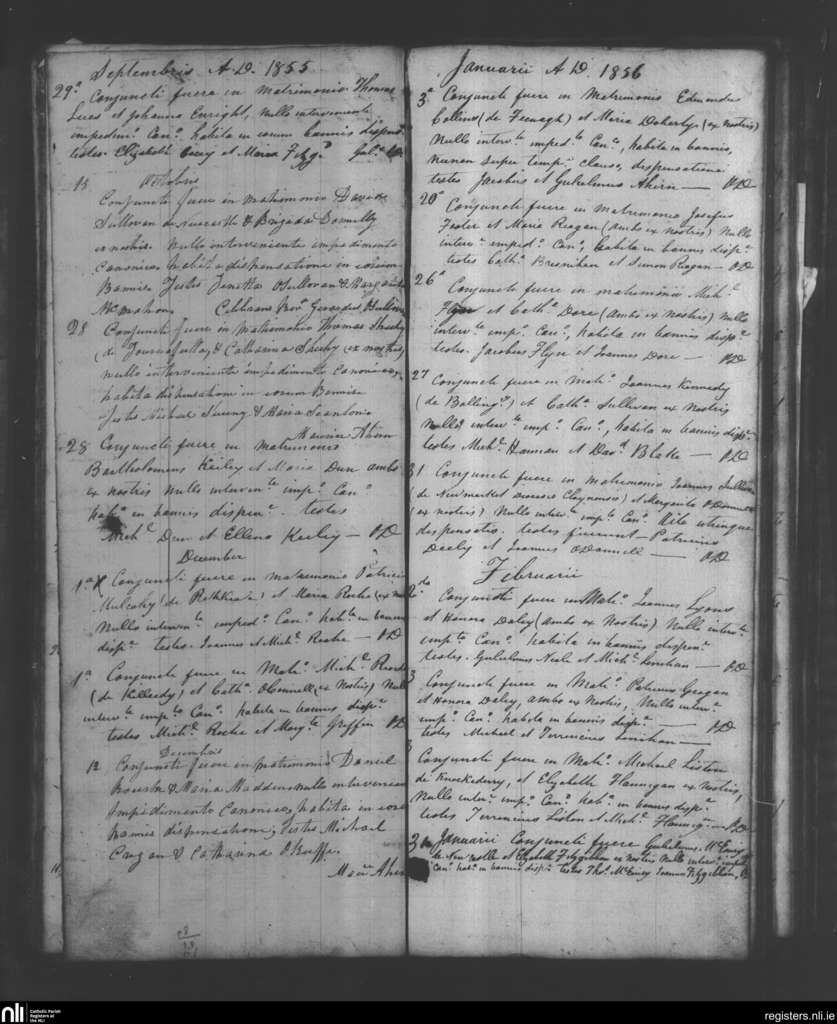 Septembris A.D. 1855
29ª Conjuncti fuere in matrimonio Thomas
et Johanna Enright, nullo interveniente
impedimo Cano, habita in eorum bannis dispens
testes Elizabeth et Maria
15 Octobris
Conjuncti fuere in matrimonio David
Sullivan de Newcastle & Brigida Donnelly
ex nostris nullo interveniente impedimento
Canonico habita dispensatione in eorum
Bannis Testes O Sullivan &
McMahon Gerardus
28 Conjuncti fuere in matrimonio Thomas Sheehy
(de & Catharina Sheehy (ex nostris)
nullo interveniente impedimento canonico
habita dispensatione in eorum Bannis
Testes Michael & Maria Scanlon
Ahern
28 Conjuncti fuere in matrimonio
Bartholomeus Keiley et Maria Dun ambo
ex nostris nullo intervente impo Cano
habo in bannis dispeno. testes
Michl Dun et Ellena Keiley — P.D
December
1ª Conjuncti fuere in matrimonio Patricius
Mulcahy (de Rathkeale) et Maria Roche (ex
Nullo intervente impedo Cano habta in bannis
dispo testes. Joannes et Michl Roche — P.D
1ª Conjuncti fuere in Mato Michl
(de Killeedy) et Catha OConnell (ex Nostris) Null
intervte impto Cano habita in bannis dispo
testes Michl Roche et Margte Griffin P.D
Decembris
12 Conjuncti fuere in matrimonio Daniel
& Maria Madden nullo intervenien
Impedimento Canonico, habita in
bannis dispensatione, Testes Michael
& Catharina
Januarii A.D. 1856
3ª Conjuncti fuere in Matrimonio Edmundus
Collins (de Feenagh) et Maria Doherty (ex nostris)
Nullo intervte impedto Cano, habita in bannis,
necnon super tempo clauso, dispensatione
testes Jacobus et Gulielmus Ahern — P.D
20ª Conjuncti fuere in matrimonio Josephus
Foster et Maria Reagan (ambo ex nostris) Nullo
intervo impedo Cano, habita in bannis dispo
testes Catha Bresnihan et Simon Reagan — P.D
26ª Conjuncti fuere in matrimonio Michl
Flynn et Catha Dore (ambo ex nostris) nullo
intervte impo Cano, habita in bannis dispo
testes. Jacobus Flynn et Joannes Dore — P.D
27 Conjuncti fuere in Mato Joannes Kennedy
(de Ballingo) et Catha Sullivan ex Nostris
Nullo intervte impo Cano, habita in bannis dispo
testes Michl Hannan et Davd Blake — P.D
31 Conjuncti fuere in matrimonio Joannes Sullivan
(de Newmarket diocesis Cloynensis) et Margarita ODonnell
(ex nostris) Nullo intervo impto Cano Rite utrinque
dispensatis. testes fuerunt Patricius
Deely et Joannes ODonnell — P.D
Februarii
2do Conjuncti fuere in Mato Joannes Lyons
et Honora Daley (ambo ex Nostris) Nullo intervte
impto Cano habita in bannis dispeno
testes. Gulielmus Neale et Michl Lenihan — P.D
3 Conjuncti fuere in Mato Patricius Geogan
et Honora Daley, ambo ex Nostris, Nullo intervo
impo Cano habita in bannis dispo — P.D
testes Michael et Terrencius Lenihan —
3 Conjuncti fuere in Mato Michael Liston
de Knockaderry, et Elizabeth Flannigan ex Nostris,
Nullo intervo impo Cano habo in bannis dispo
testes Terrencius Liston et Michl Flannigan — P.D
Januarii Conjuncti fuere Gulielmus
et Elizabeth Fitzgibbon ex nostris Nullo intervo
Cano habo in bannis dispo testes Thos McEniry Joannes Fitzgibbon
nli
Catholic Parish
Registers at
the NLI
registers.nli.ie